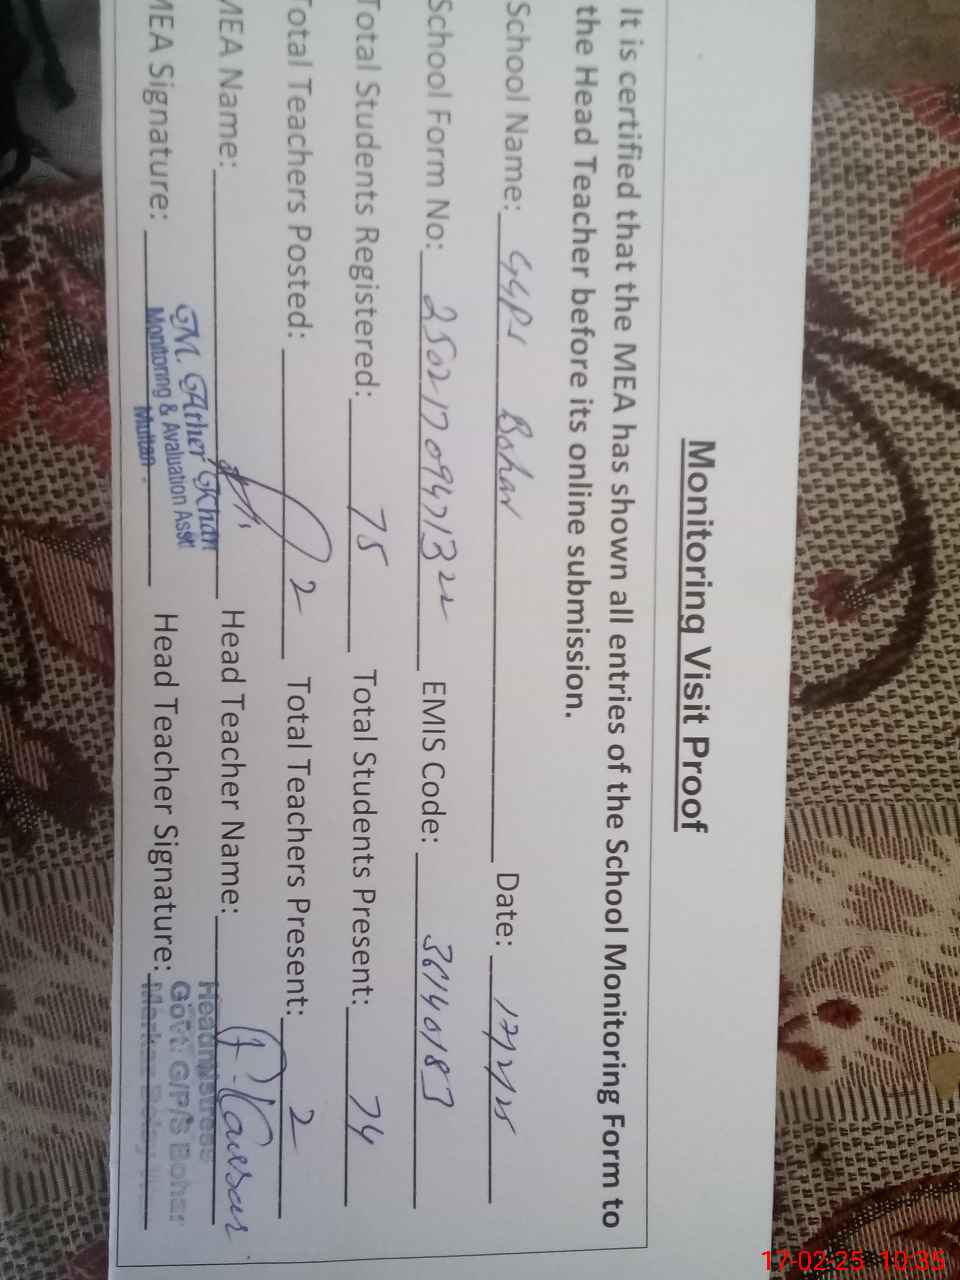 Monitoring Visit Proof
It is certified that the MEA has shown all entries of the School Monitoring Form to
the Head Teacher before its online submission.
School Name: GGPS Bohar Date: 17/2/25
School Form No: EMIS Code: 36140183
Total Students Registered: 75 Total Students Present: 74
Total Teachers Posted: 2 Total Teachers Present: 2
MEA Name: Head Teacher Name:
MEA Signature: Head Teacher Signature:
M. Ather Khan
Monitoring & Avaluation Asstt
Multan.
Headmistress
Govt: G/P/S Bohar
17-02-25 10:35